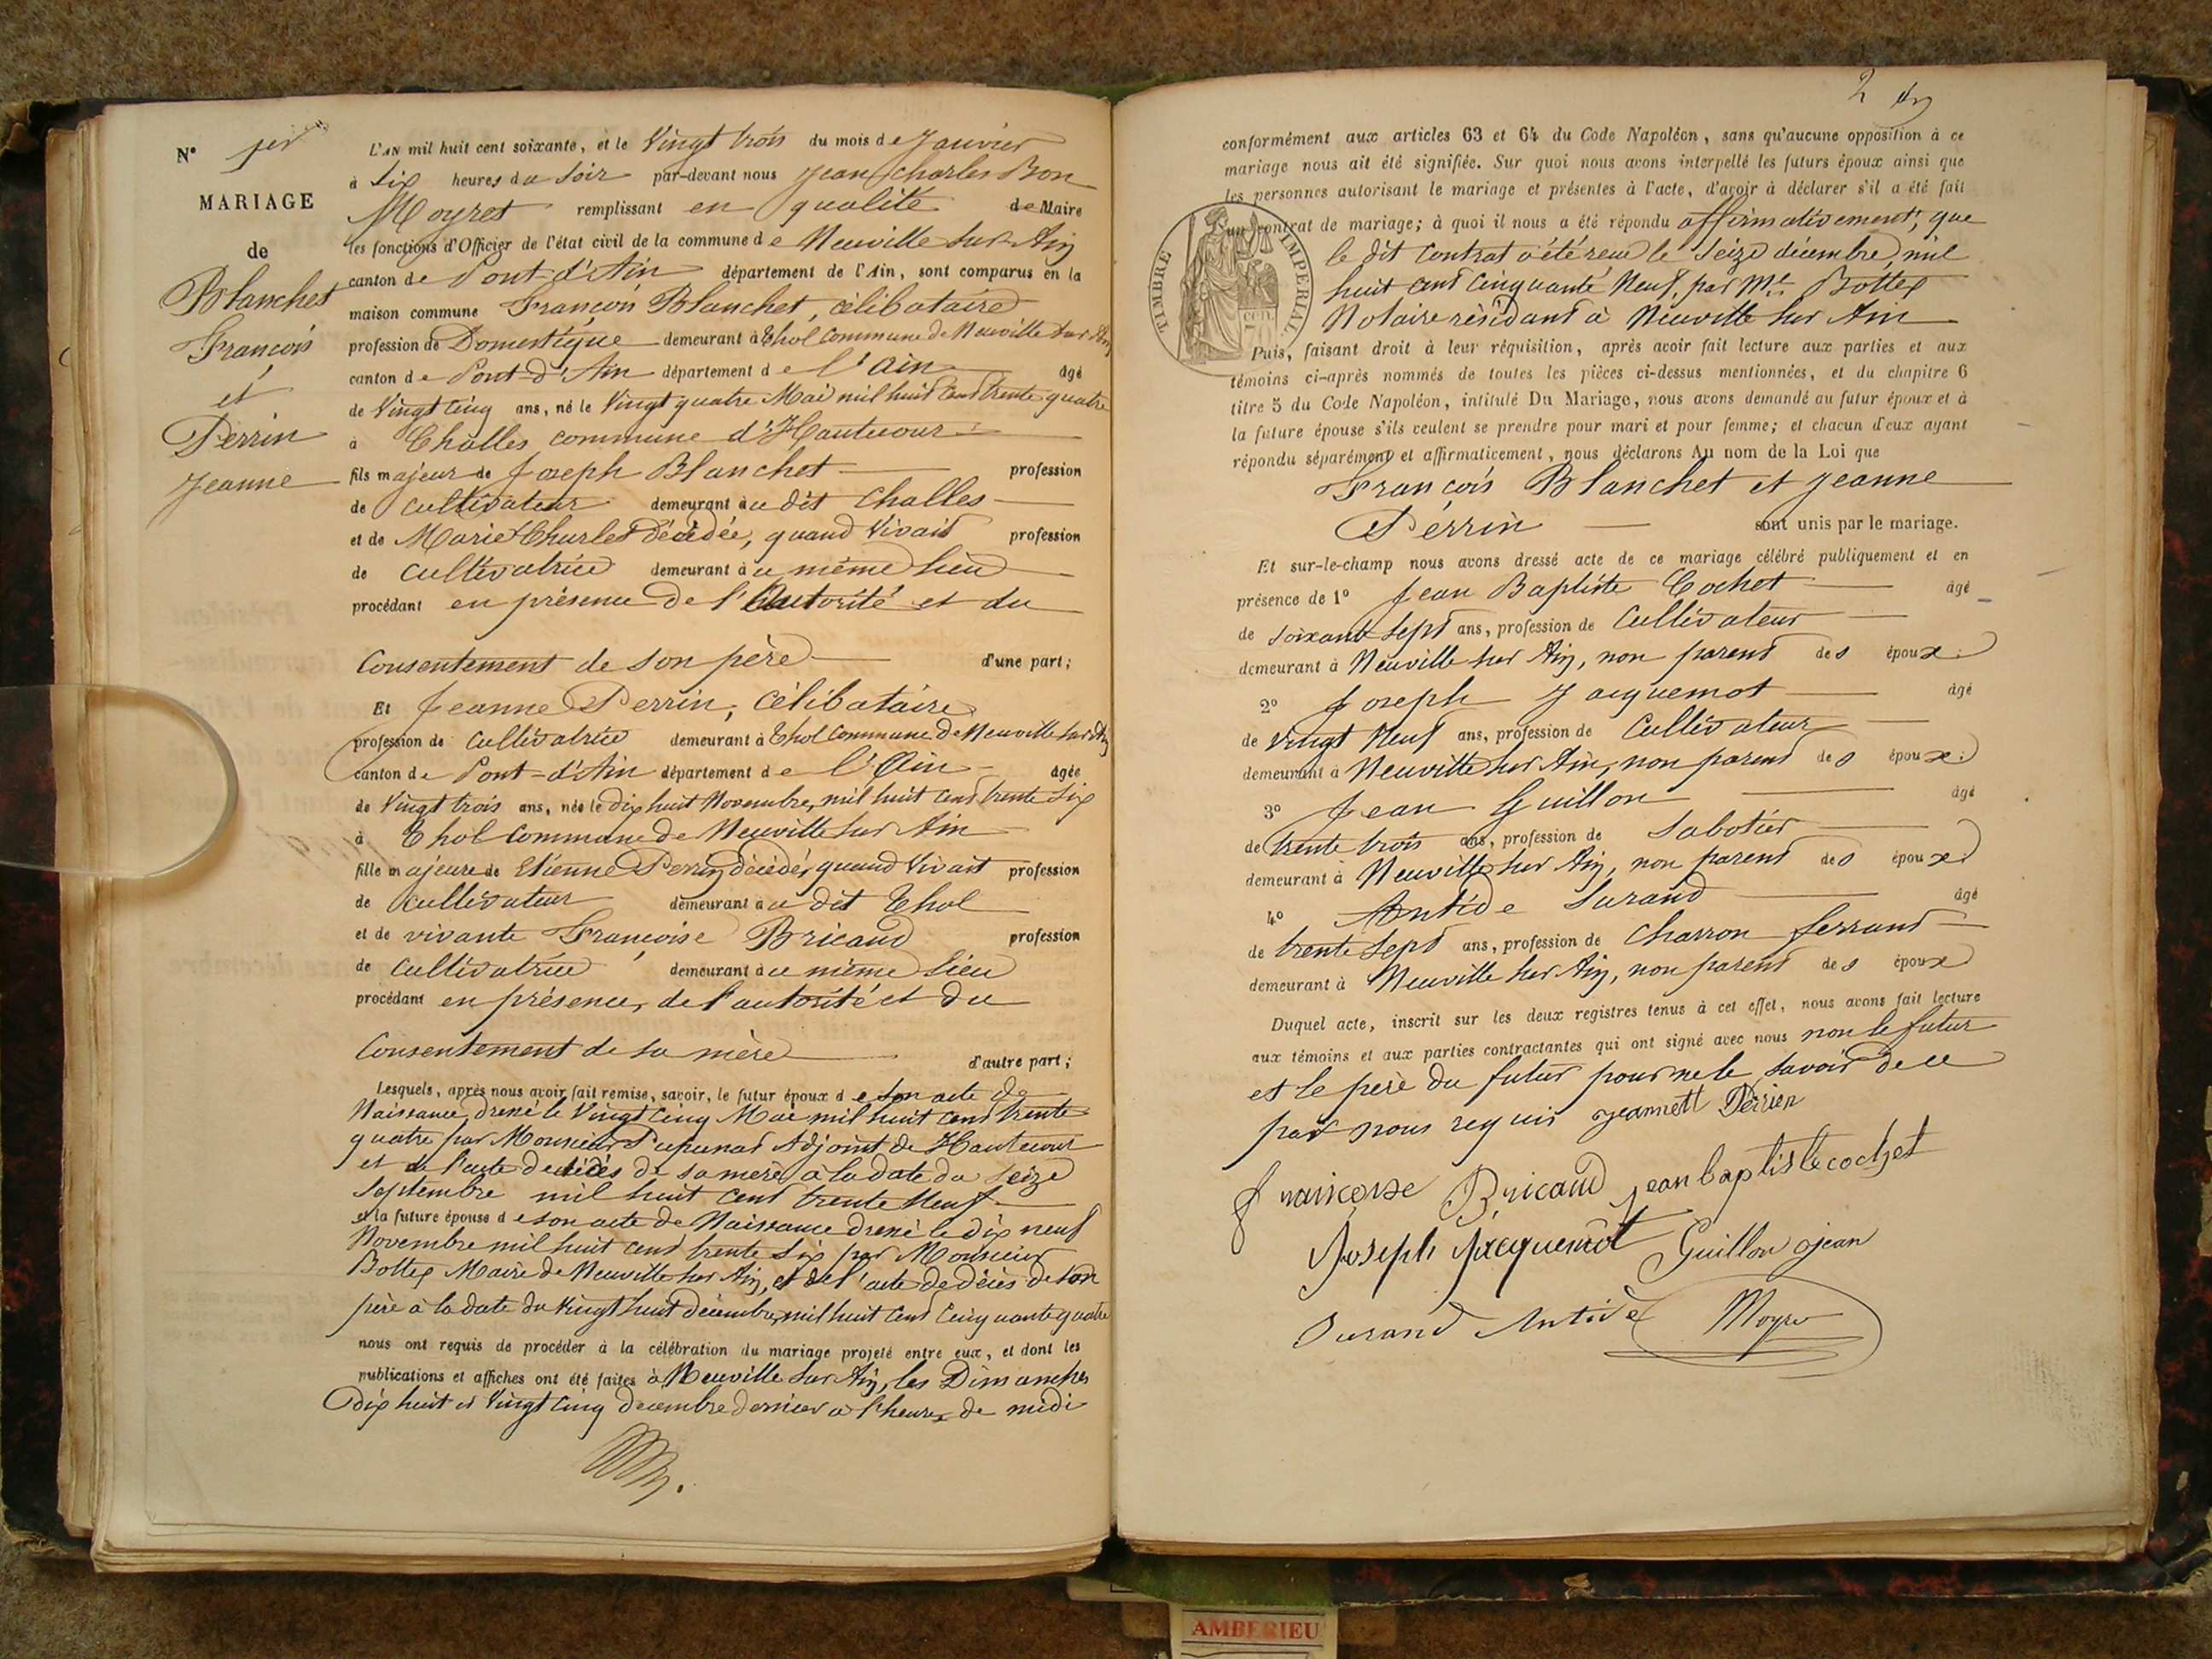 N° 1er
MARIAGE
de
Blanchet
François
et
Perrin
Jeanne
L'AN mil huit cent soixante, et le Vingt trois du mois de Janvier
à Six heures du Soir par-devant nous Jean Charles Bon
Moyret remplissant en qualité de Maire
les fonctions d'Officier de l'état civil de la commune de Neuville sur Ain
canton de Pont-d'Ain département de l'Ain, sont comparus en la
maison commune François Blanchet, célibataire
profession de Domestique demeurant à Thol commune de Neuville sur Ain
canton de Pont-d'Ain département de l'Ain âgé
de Vingt cinq ans, né le Vingt quatre Mai mil huit cent trente quatre
à Challes commune d'Hautecour
fils majeur de Joseph Blanchet profession
de Cultivateur demeurant au dit Challes
et de Marie Churlet décédée, quand Vivait profession
de Cultivatrice demeurant au même lieu
procédant en présence de l'Autorité et du
Consentement de son père d'une part;
Et Jeanne Perrin, célibataire
profession de Cultivatrice demeurant à Thol Commune de Neuville sur Ain
canton de Pont-d'Ain département de l'Ain âgée
de Vingt trois ans, née le dix huit Novembre, mil huit cent trente Six
à Thol commune de Neuville sur Ain
fille majeure de Etienne Perrin décédé, quand Vivait profession
de Cultivateur demeurant au dit Thol
et de vivante Françoise Bricaud profession
de Cultivatrice demeurant au même lieu
procédant en présence, de l'autorité et du
Consentement de sa mère d'autre part;
Lesquels, après nous avoir fait remise, savoir, le futur époux de son acte de
Naissance, dressé le Vingt cinq Mai mil huit cent trente
quatre par Monsieur Adjoint de Hautecour
et de l'acte de décès de sa mère, à la date du Seize
Septembre mil huit cent trente Neuf
et la future épouse de son acte de Naissance dressé le dix neuf
Novembre mil huit cent trente Six par Monsieur
Bottex Maire de Neuville sur Ain, et de l'acte de décès de son
père à la date du Vingt huit décembre, mil huit cent Cinquante quatre
nous ont requis de procéder à la célébration du mariage projeté entre eux, et dont les
publications et affiches ont été faites à Neuville sur Ain, les Dimanches
dix huit et Vingt Cinq décembre dernier à l'heure de midi
2
conformément aux articles 63 et 64 du Code Napoléon, sans qu'aucune opposition à ce
mariage nous ait été signifiée. Sur quoi nous avons interpellé les futurs époux ainsi que
les personnes autorisant le mariage et présentes à l'acte, d'avoir à déclarer s'il a été fait
un contrat de mariage; à quoi il nous a été répondu affirmativement, que
TIMBRE IMPÉRIAL
le dit Contrat a été reçu le Seize décembre, mil
huit cent Cinquante Neuf, par Me. Bottex
Notaire résidant à Neuville sur Ain
Puis, faisant droit à leur réquisition, après avoir fait lecture aux parties et aux
témoins ci-après nommés de toutes les pièces ci-dessus mentionnées, et du chapitre 6
titre 5 du Code Napoléon, intitulé Du Mariage, nous avons demandé au futur époux et à
la future épouse s'ils veulent se prendre pour mari et pour femme; et chacun d'eux ayant
répondu séparément et affirmativement, nous déclarons Au nom de la Loi que
François Blanchet et Jeanne
Perrin sont unis par le mariage.
Et sur-le-champ nous avons dressé acte de ce mariage célébré publiquement et en
présence de 1° Jean Baptiste Cochet âgé
de Soixante Sept ans, profession de Cultivateur
demeurant à Neuville sur Ain, non parent des époux.
2° Joseph Jacquemot âgé
de Vingt Neuf ans, profession de Cultivateur
demeurant à Neuville sur Ain, non parent des époux.
3° Jean Guillon âgé
de trente trois ans, profession de Sabotier
demeurant à Neuville sur Ain, non parent des époux.
4° Antide Durand âgé
de trente Sept ans, profession de Charron ferrant
demeurant à Neuville sur Ain, non parent des époux
Duquel acte, inscrit sur les deux registres tenus à cet effet, nous avons fait lecture
aux témoins et aux parties contractantes qui ont signé avec nous non le futur
et le père du futur pour ne le savoir de ce
par nous requis Jeannett Perrin
françoise Bricaud jean baptiste cochet
Joseph Jacquemot Guillon jean
Durand Antide Moyret
AMBERIEU